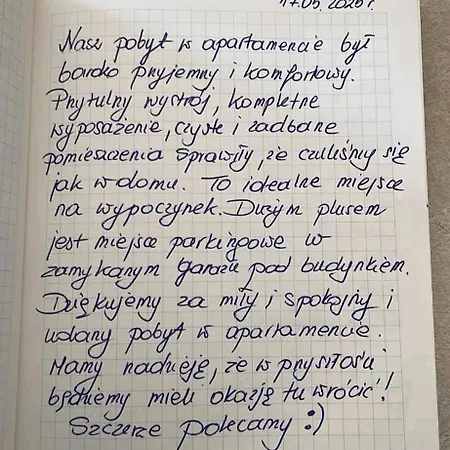 17.05.2025 r.
Nasz pobyt w apartamencie był
bardzo przyjemny i komfortowy.
Przytulny wystrój, kompletne
wyposażenie, czyste i zadbane
pomieszczenia sprawiły, że czuliśmy się
jak w domu. To idealne miejsce
na wypoczynek. Dużym plusem
jest miejsce parkingowe w
zamykanym garażu pod budynkiem.
Dziękujemy za miły i spokojny i
udany pobyt w apartamencie.
Mamy nadzieję, że w przyszłości
będziemy mieli okazję tu wrócić!
Szczerze polecamy :)